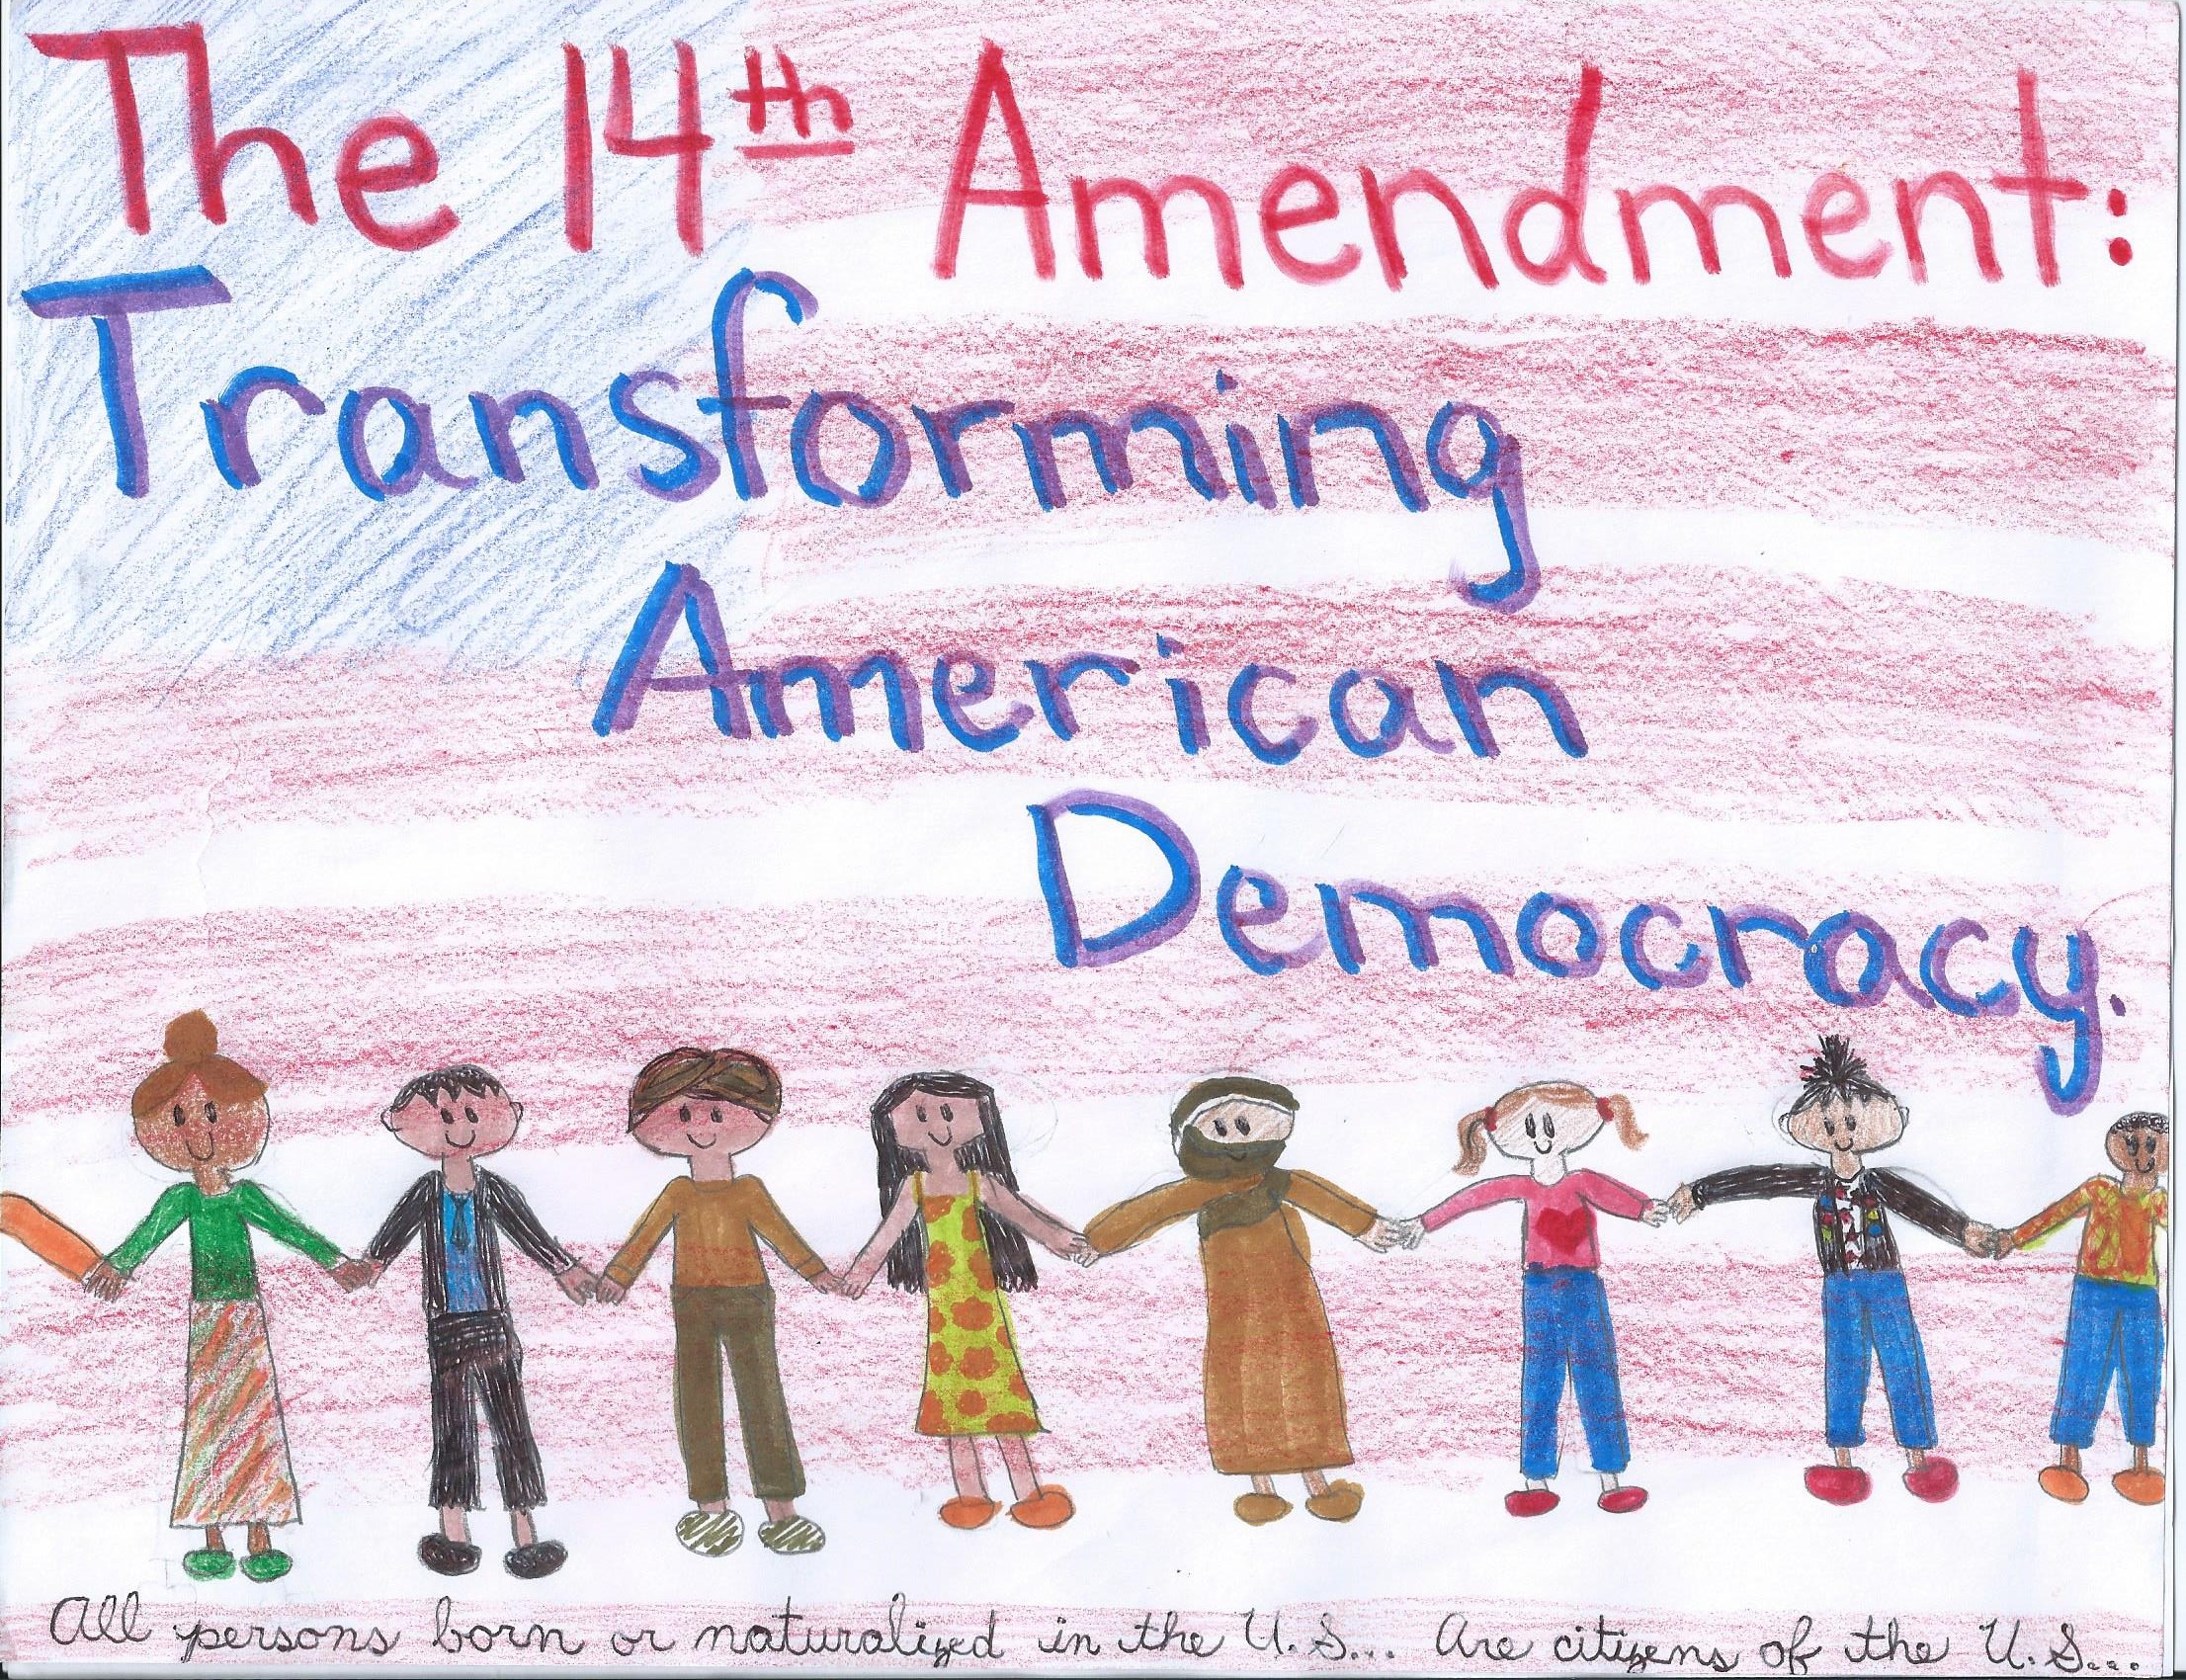 The 14th Amendment:
Transforming
American
Democracy.
All persons born or naturalized in the U.S... Are citizens of the U.S...